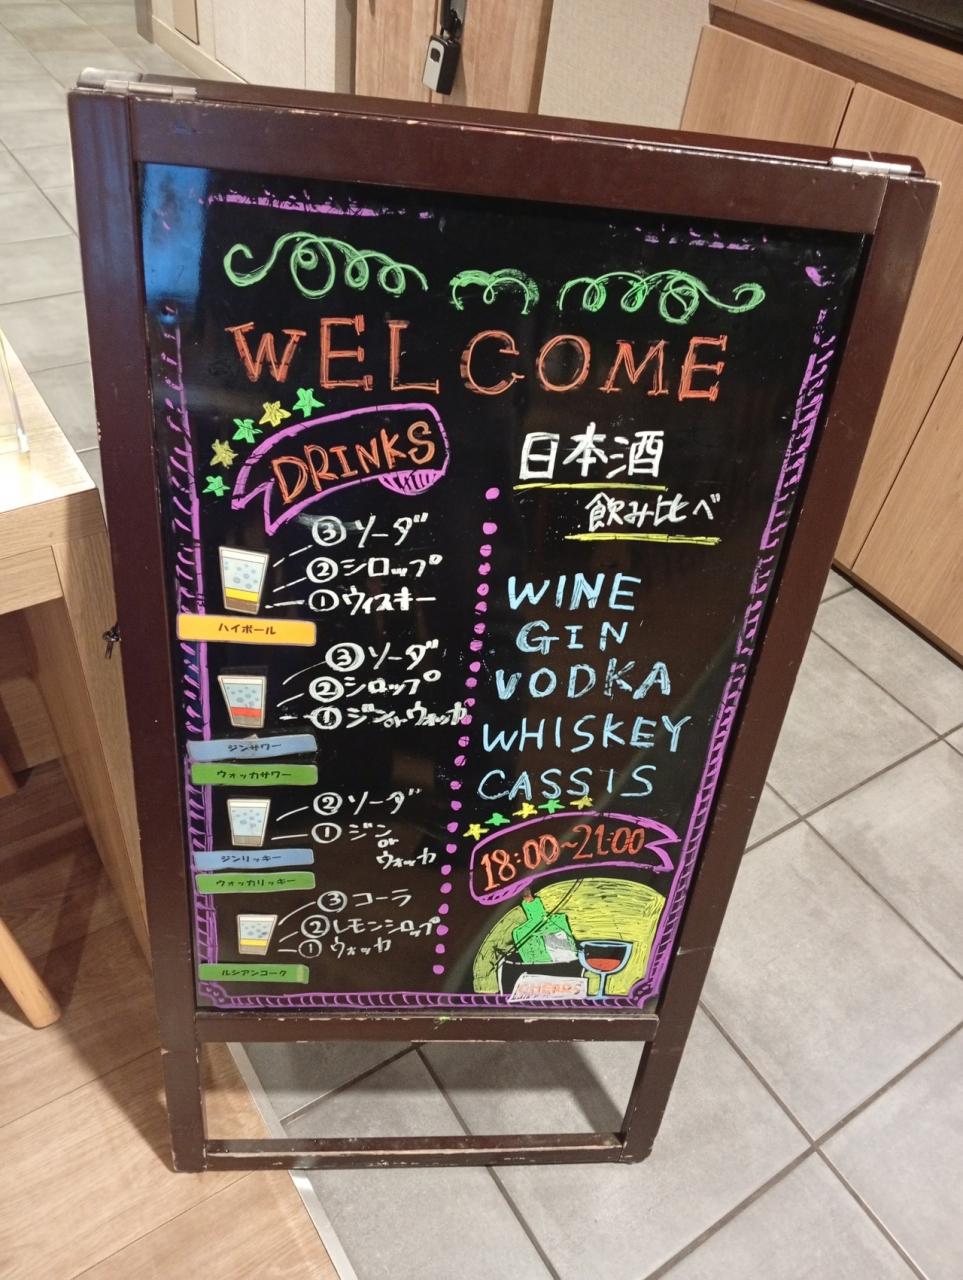 WELCOME
DRINKS
③ソーダ
②シロップ
①ウィスキー
ハイボール
③ソーダ
②シロップ
①ジンorウォッカ
ジンサワー
ウォッカサワー
②ソーダ
①ジン
or
ウォッカ
ジンリッキー
ウォッカリッキー
③コーラ
②レモンシロップ
①ウォッカ
ルシアンコーク
日本酒
飲み比べ
WINE
GIN
VODKA
WHISKEY
CASSIS
18:00~21:00
CHEERS